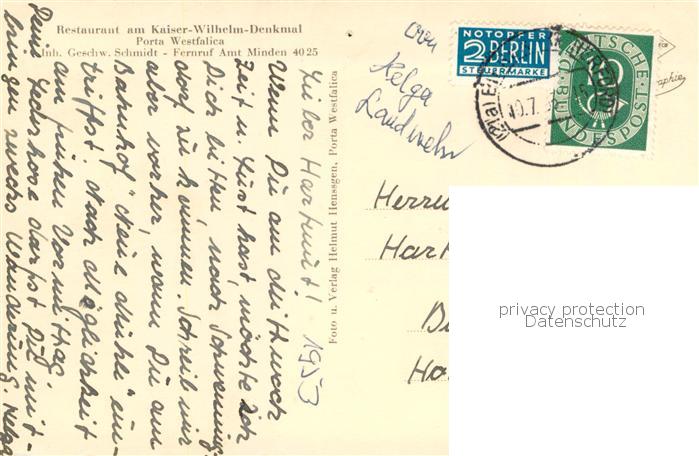 Restaurant am Kaiser-Wilhelm-Denkmal
Porta Westfalica
Inh. Geschw. Schmidt - Fernruf Amt Minden 4025
Lieber Hartmut! 1953
Wenn Du am Mittwoch
Zeit u. Lust hast, möchte ich
Dich bitten nach
dorf zu kommen. Schreib mir
aber vorher, wann Du am
Bahnhof "Neue Mühle" ein-
triffst. Nach Möglichkeit
am frühen Vormittag.
Deine Lederhose darfst Du mit-
bringen zwecks Wanderung. Helga
Foto u. Verlag Helmut Henssgen, Porta Westfalica
Helga
Landwehr
NOTOPFER
2 BERLIN
STEUERMARKE
DEUTSCHE
BUNDESPOST
10
10.7.
Herrn
Hart
privacy protection
Datenschutz